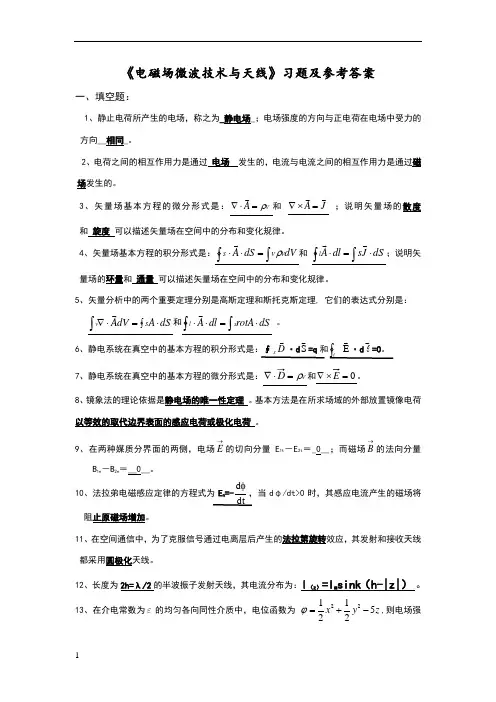 《电磁场微波技术与天线》习题及参考答案
一、填空题：
1、静止电荷所产生的电场，称之为 静电场 ；电场强度的方向与正电荷在电场中受力的
方向 相同 。
2、电荷之间的相互作用力是通过 电场 发生的，电流与电流之间的相互作用力是通过磁
场发生的。
3、矢量场基本方程的微分形式是：∇⋅A̅=ρ_V 和 ∇×A̅=J̅ ；说明矢量场的散度
和 旋度 可以描述矢量场在空间中的分布和变化规律。
4、矢量场基本方程的积分形式是：∮_S⋅A̅⋅dS=∫_Vρ_VdV 和 ∮_lA̅⋅dl=∫_sJ̅⋅dS；说明矢
量场的环量和 通量 可以描述矢量场在空间中的分布和变化规律。
5、矢量分析中的两个重要定理分别是高斯定理和斯托克斯定理, 它们的表达式分别是：
∫_v∇⋅A̅dV=∮_sA⋅dS 和∮_l⋅A̅⋅dl=∫_srotA⋅dS 。
6、静电系统在真空中的基本方程的积分形式是：∮_sD̅·dS̅=q 和∮_lE̅·dl̅=0。
7、静电系统在真空中的基本方程的微分形式是：∇⋅D⃗=ρ_V和∇×E⃗=0。
8、镜象法的理论依据是静电场的唯一性定理 。基本方法是在所求场域的外部放置镜像电荷
以等效的取代边界表面的感应电荷或极化电荷 。
9、在两种媒质分界面的两侧，电场E⃗的切向分量 E₁ₜ－E₂ₜ＝ 0 ；而磁场B⃗的法向分量
B₁ₙ－B₂ₙ＝ 0 。
10、法拉弟电磁感应定律的方程式为 Eₙ=-dϕ/dt，当 dφ/dt>0 时，其感应电流产生的磁场将
阻止原磁场增加。
11、在空间通信中，为了克服信号通过电离层后产生的法拉第旋转效应，其发射和接收天线
都采用圆极化天线。
12、长度为 2h=λ/2 的半波振子发射天线，其电流分布为：I₍z₎=Iₘsink（h-|z|） 。
13、在介电常数为ε的均匀各向同性介质中，电位函数为 φ=1/2x²+1/2y²−5z,则电场强
1